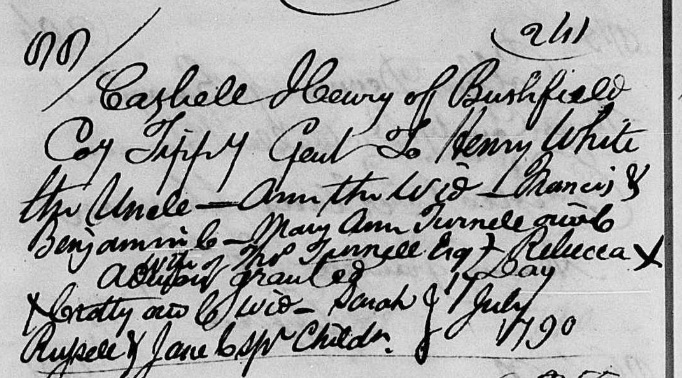 241
Cashell Henry of Bushfield
Coy Tippy Gent To Henry White
the Uncle — Ann the Wid — Francis &
Benjamin C — Mary Ann Turnell
of Thos Turnell Esqr Rebecca
granted 17 Day
Wid — Sarah July
Russell & Jane C Spr Childn. 1790